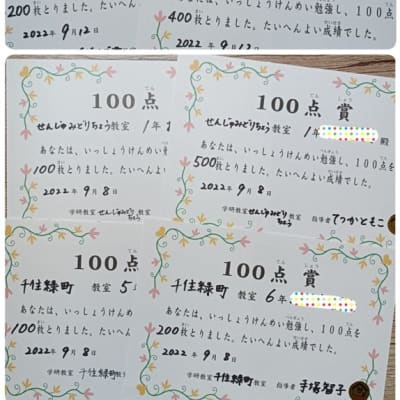 200枚とりました。たいへん
2022年9月12
いっしょうけんめい勉強し、100点
400枚とりました。たいへんよい成績でした。
2022年9月12日
100点
せんじゅみどりちょう教室 1年
あなたは、いっしょうけんめい
100枚とりました。たいへん
2022年9月8日
学研教室せんじゅみどりちょう
100点 賞
せんじゅみどりちょう教室 1年 殿
あなたは、いっしょうけんめい勉強し、100点を
500枚とりました。たいへんよい成績でした。
2022年9月8日
学研教室せんじゅみどりちょう教室 指導者 てつかともこ
100点
千住緑町 教室 5
あなたは、いっしょうけんめ
100枚とりました。たいへ
2022年9月8日
学研教室 千住緑町教
100点 賞
千住緑町 教室 6年
あなたは、いっしょうけんめい勉強し、100点を
200枚とりました。たいへんよい成績でした。
2022年9月8日
学研教室千住緑町教室 指導者 手塚智子